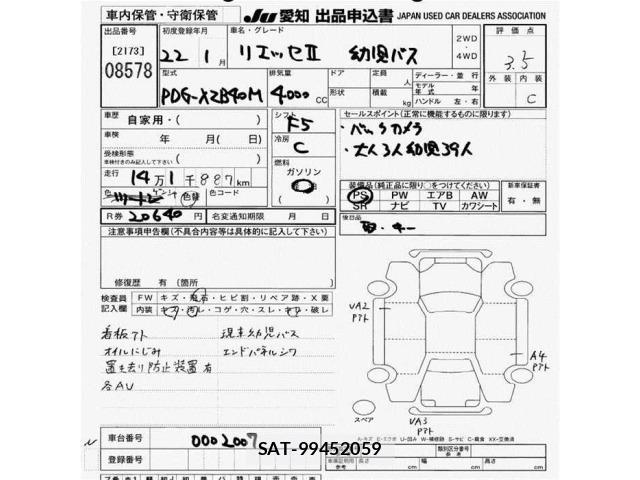 車内保管・守衛保管
JU 愛知 出品申込書 JAPAN USED CAR DEALERS ASSOCIATION
出品番号 初度登録年月 車名・グレード 2WD・4WD 評価点
[2173]
08578 22年 1月 リエッセⅡ 幼児バス 3.5
型式 排気量 ドア 定員 人 ディーラー・並行 外装 内装
PDG-XZB40M 4000cc 形状 積載 kg モデル年式 年 C
ハンドル 左・右
車歴 自家用・( ) シフト F5 セールスポイント(正常に機能するものに限ります)
車検 年 月(日) 冷房 C ・バックカメラ
受検形態 ( ) ・大人3人幼児39人
車検付きのみ記入して下さい
走行 14万1千887km 燃料 ガソリン
色 色替 色コード
装備品(純正品に限り○をつけてください) 新車保証書
PS PW エアB AW 有・無
SR ナビ TV カワシート
R券 20640円 名変通知期限 月 日
後日品
取・キー
注意事項申告欄(不具合内容等は具体的に記入して下さい)
修復歴 有(箇所 )
検査員記入欄 FW キズ・飛石・ヒビ割・リペア跡・X要
内装 キズ・汚レ・コゲ・穴・スレ・キレ・破レ
看板アト 現車幼児バス
オイルにじみ エンドパネルシワ
置き去り防止装置有
各AU
VA2
アト
A4
アト
VA3
アト
スペア
車台番号 0002007
登録番号
SAT-99452059